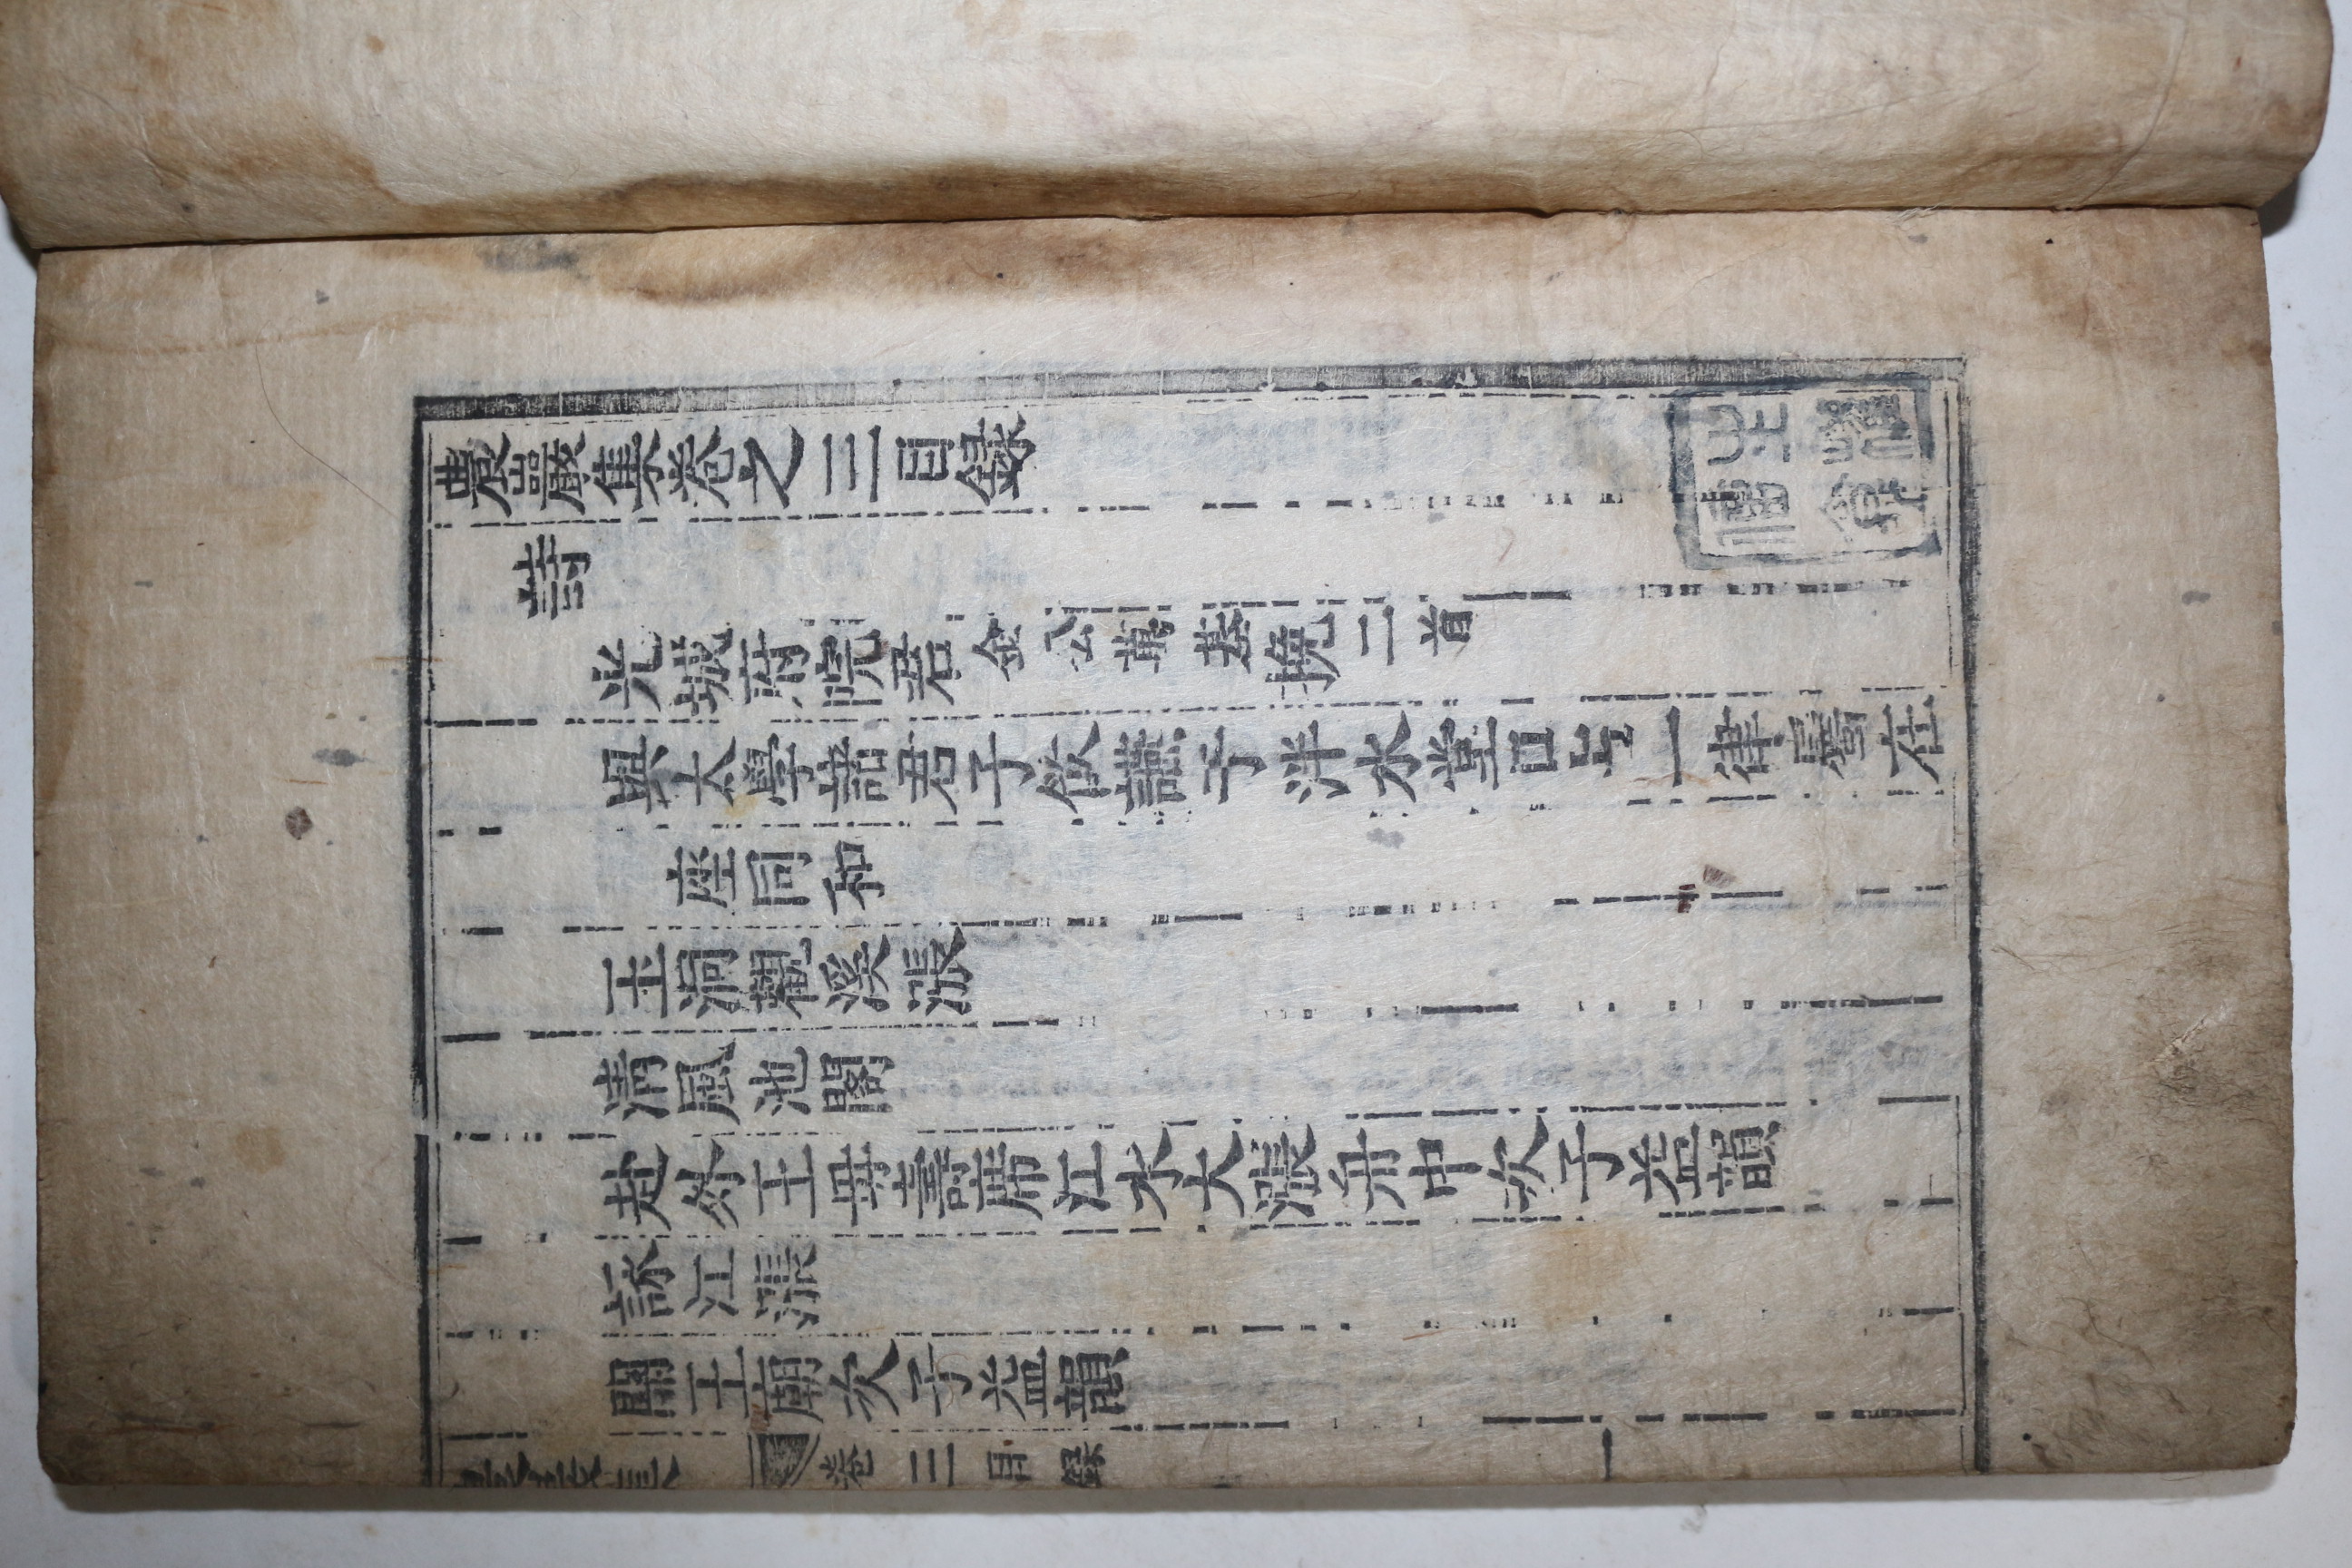 農巖集卷之三目録
詩
光城府院君金公萬基挽二首
與太學諸君子飮讌于泮水堂口占一律屬在
座同和
玉洞觀溪漲
清風池閣
赴外王母壽席江水大漲舟中次子益韻
詠江漲
關王廟次子益韻
卷三目錄 一